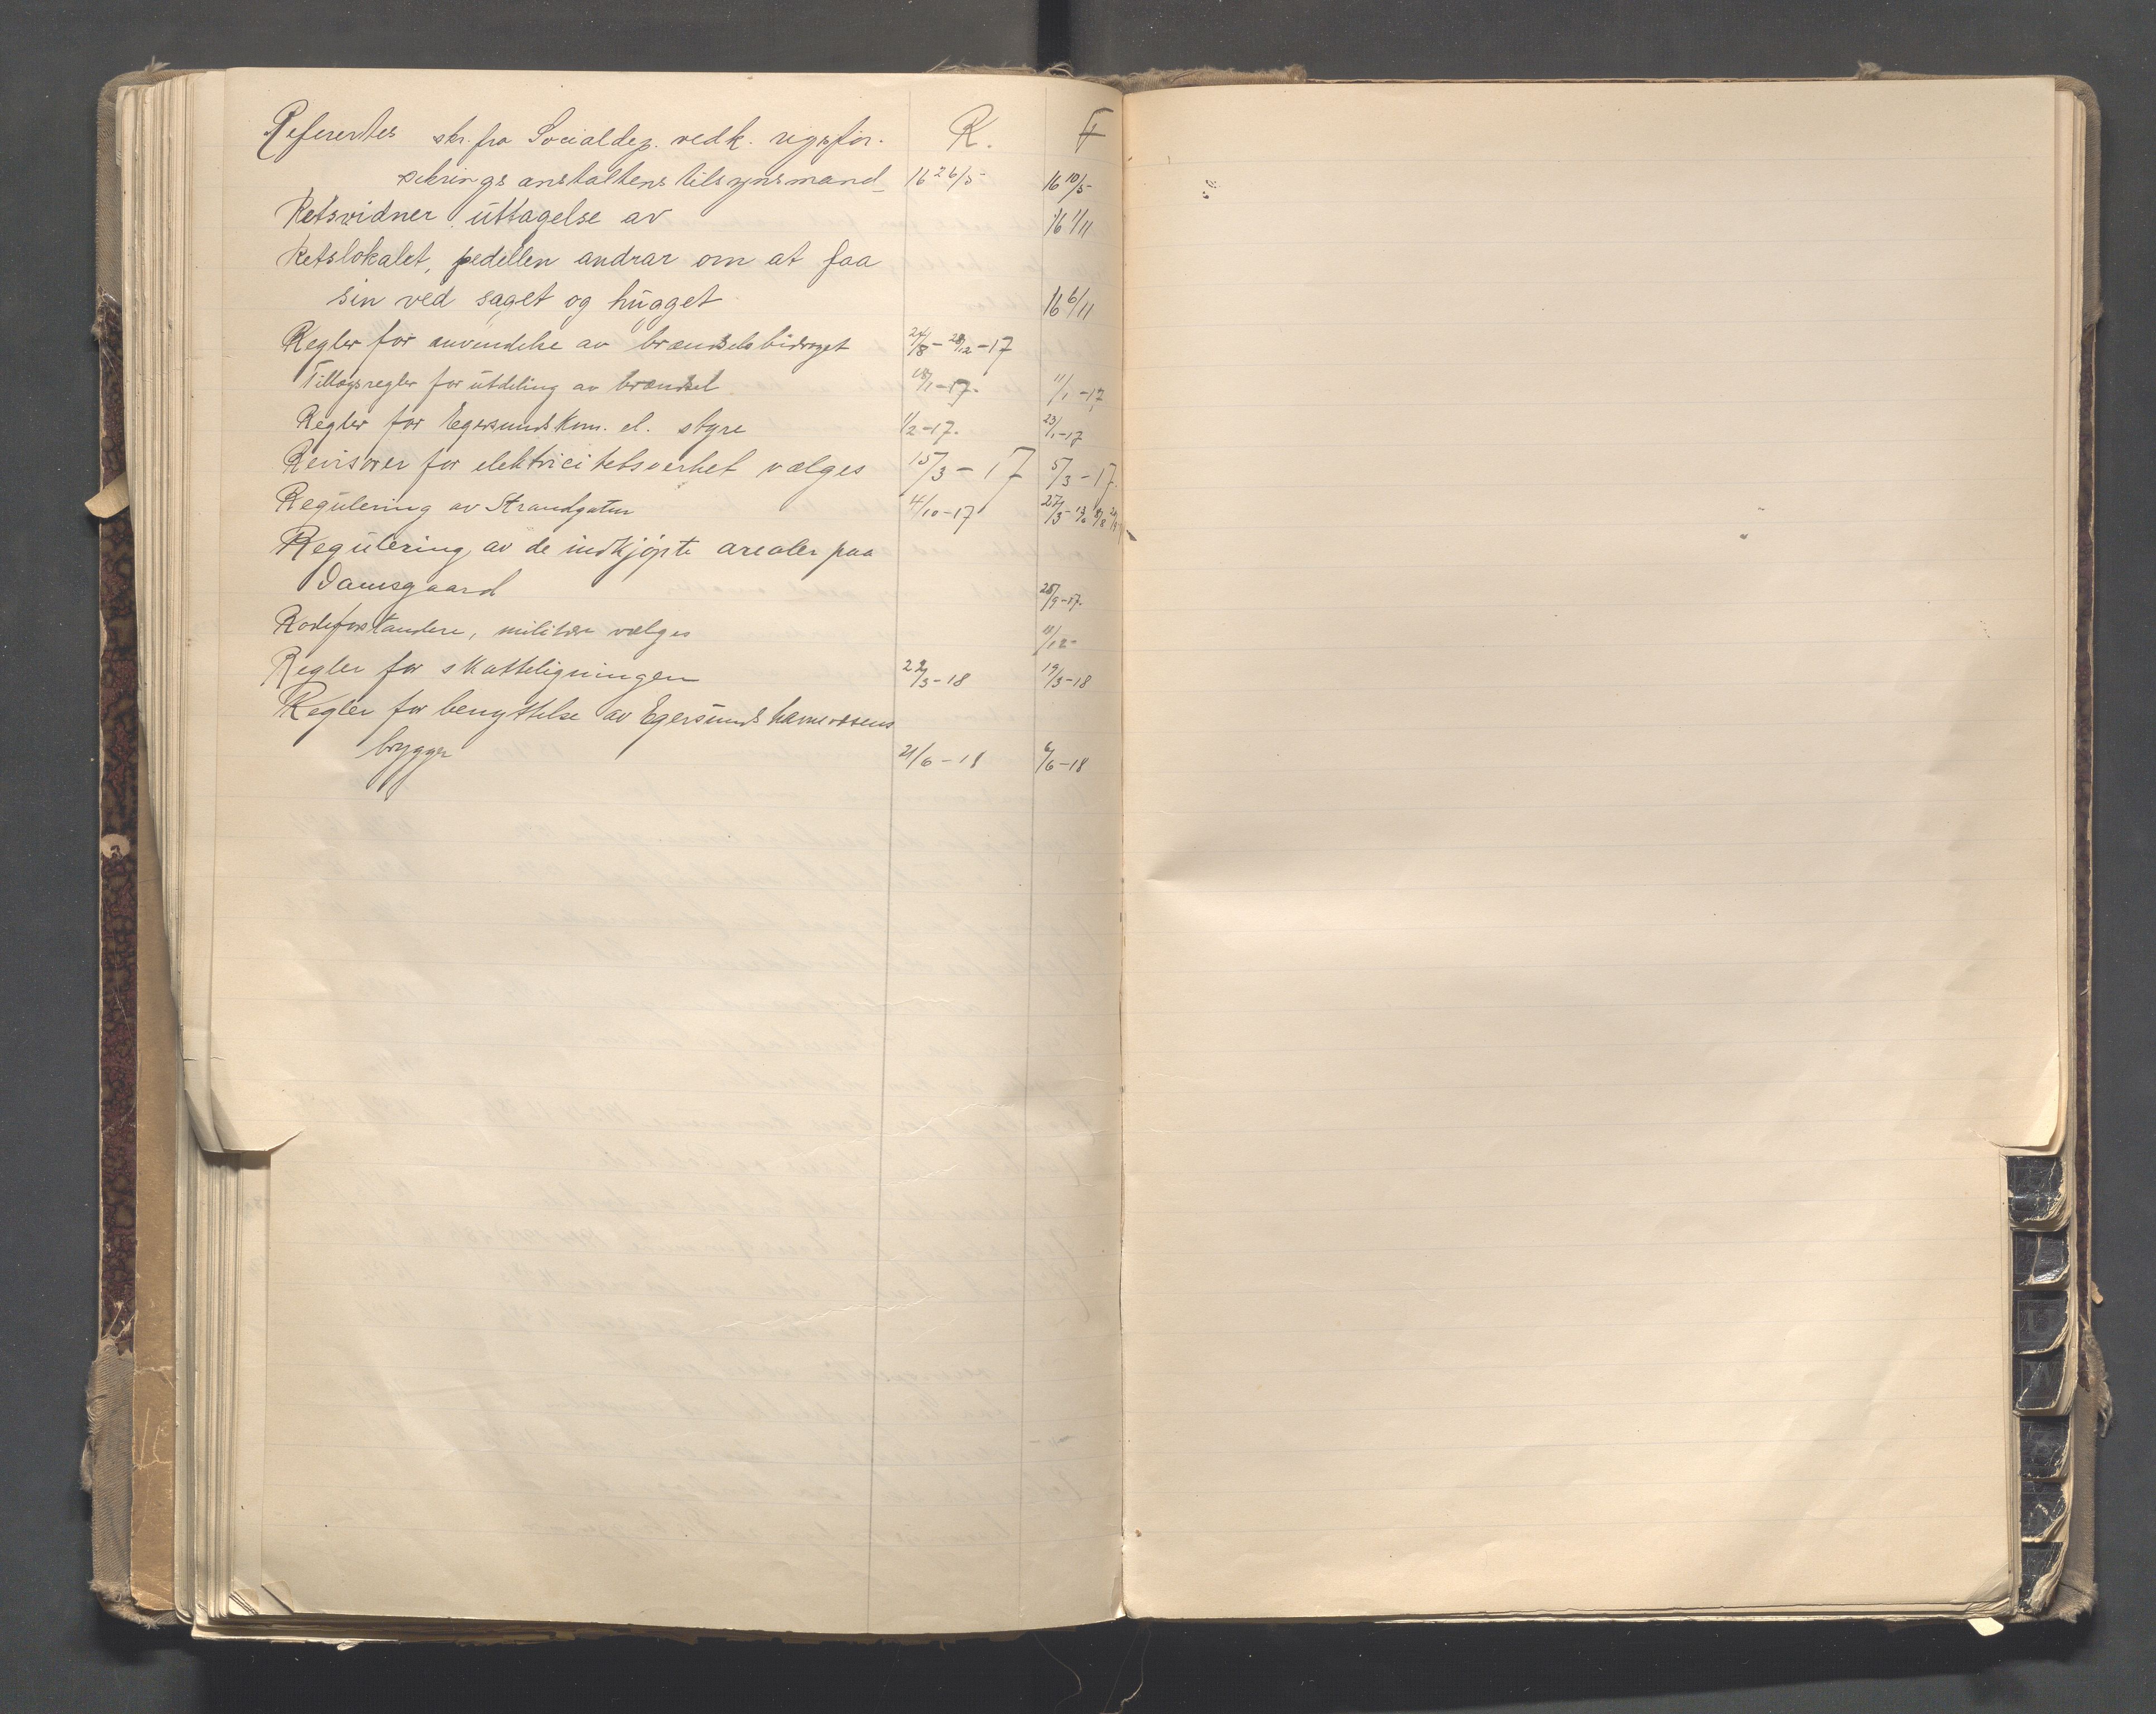 Referertes skr. fra Socialdep. vedk. rigsfor- R. F
sikringsanstaltens tilsynsmand 16 26/5 16 10/5
Retsvidner uttagelse av 16 1/11
Retslokalet, pedellen andrar om at faa
sin ved saget og hugget 16 6/11
Regler for anvendelse av brændselsbidraget 24/8 - 28/12 - 17
Tillægsregler for utdeling av brændsel 18/1 - 17. 11/1 - 17
Regler for Egersunds Kom. el. styre 1/2 - 17. 23/1 - 17
Revisorer for elektricitetsverket vælges 15/3 - 17 5/3 - 17.
Regulering av Strandgaten 4/10 - 17 27/3
Regulering av de indkjøpte arealer paa
Damsgaard 28/9 - 17.
Rodeforstandere, militære vælges 11/12 -
Regler for skatteligningen 22/3 - 18 19/3 - 18
Regler for benyttelse av Egersunds havnevæsens
brygger 21/6 - 18 6/6 - 18